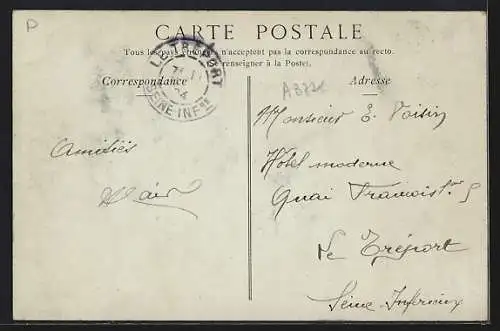 D
CARTE POSTALE
Tous les pays étrangers n'acceptent pas la correspondance au recto.
renseigner à la Poste).
Correspondance
Adresse
LE TREPORT
SEINE INFRE
Monsieur E. Voisin
Hôtel moderne
Quai François 1er 5
Le Tréport
Seine Inférieure
Amitiés